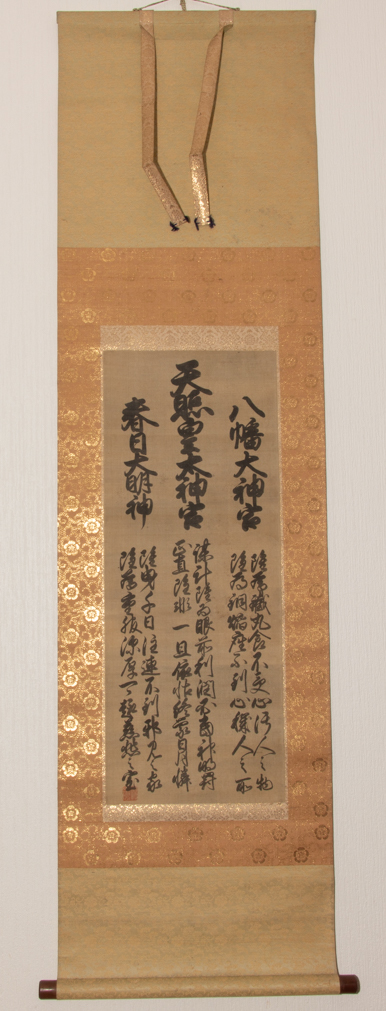 八幡大神宮
雖為鐵丸食不受心汚人之物
雖為銅焰座不到心穢人之所
天照皇太神宮
謀計雖為眼前利潤必當神明罰
正直雖非一旦依怙終蒙日月憐
春日大明神
雖曳千日注連不到邪見之家
雖為重服深厚可趣慈悲之室